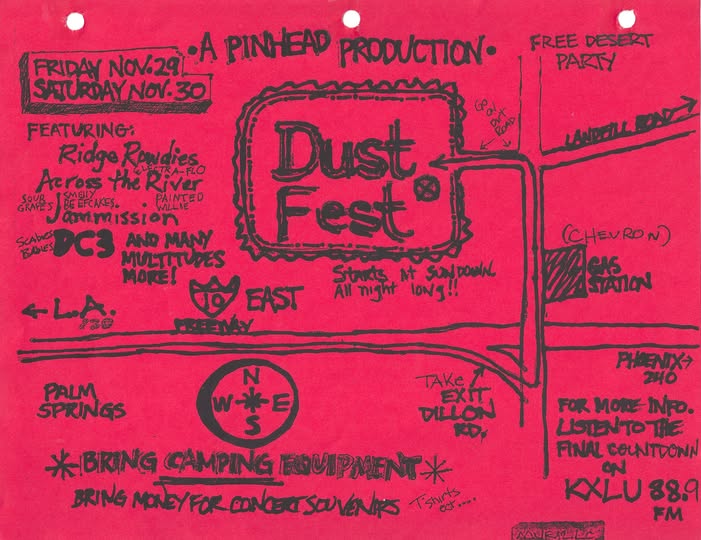 • A PINHEAD PRODUCTION •
FREE DESERT
PARTY
FRIDAY NOV. 29
SATURDAY NOV. 30
FEATURING:
Ridge Rowdies
ELECTRA-FLO
Across the River
SOUR
GRAPES
SMELLY
BEEFCAKES.
PAINTED
WILLIE
Jammission
SCABIES
BABIES
DC3
AND MANY
MULTITUDES
MORE!
Dust
Fest
GO ON
DIRT
ROAD
LANDFILL ROAD
Starts At SUNDOWN
All night long!!
(CHEVRON)
GAS
STATION
← L.A.
130
10
EAST
FREEWAY
PHOENIX →
240
PALM
SPRINGS
N
W E
S
TAKE
EXIT
DILLON
RD.
FOR MORE INFO.
LISTEN TO THE
FINAL COUNTDOWN
ON
KXLU 88.9
FM
BRING CAMPING EQUIPMENT
BRING MONEY FOR CONCERT SOUVENIRS
T-shirts